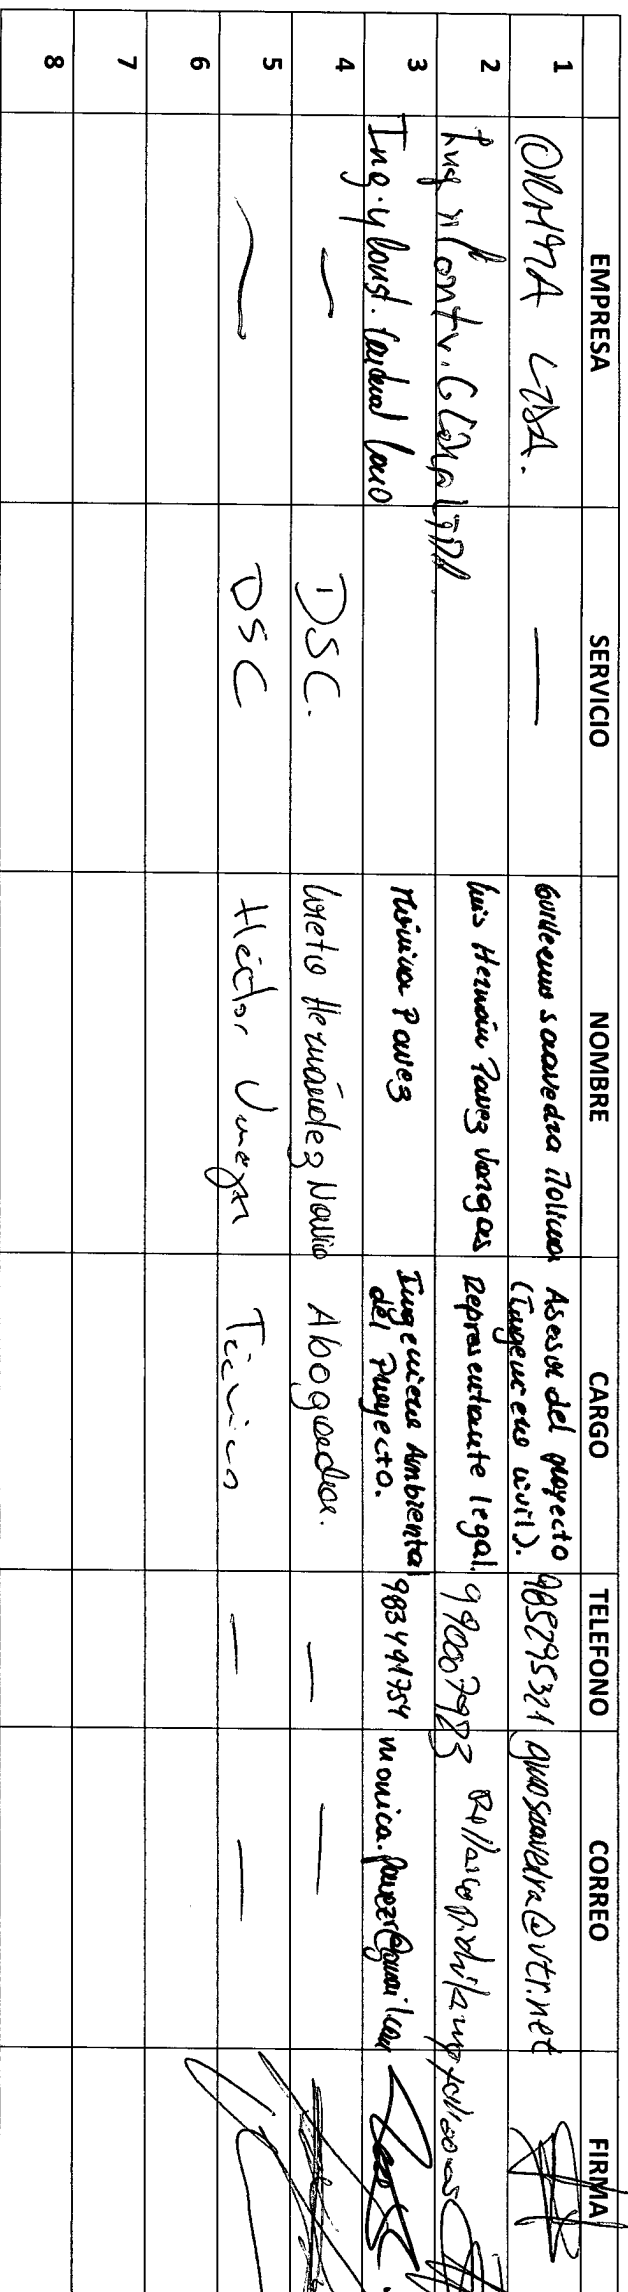 EMPRESA SERVICIO NOMBRE CARGO TELEFONO CORREO FIRMA
1 LTDA. — Guillermo Saavedra Molina Asesor del proyecto (Ingeniero civil). 985295321 gmosaavedra@vtr.net
2 LTDA. Luis Hernán Pavez Vargas Representante legal. 990007983
3 Ing. y Const. Cardenal Caro Mónica Pavez Ingeniera Ambiental del Proyecto. 983491754 monica.pavezr@gmail.com
4 — DSC. Loreto Hernández Navia Abogada. — —
5 — DSC Héctor Técnico — —
6
7
8